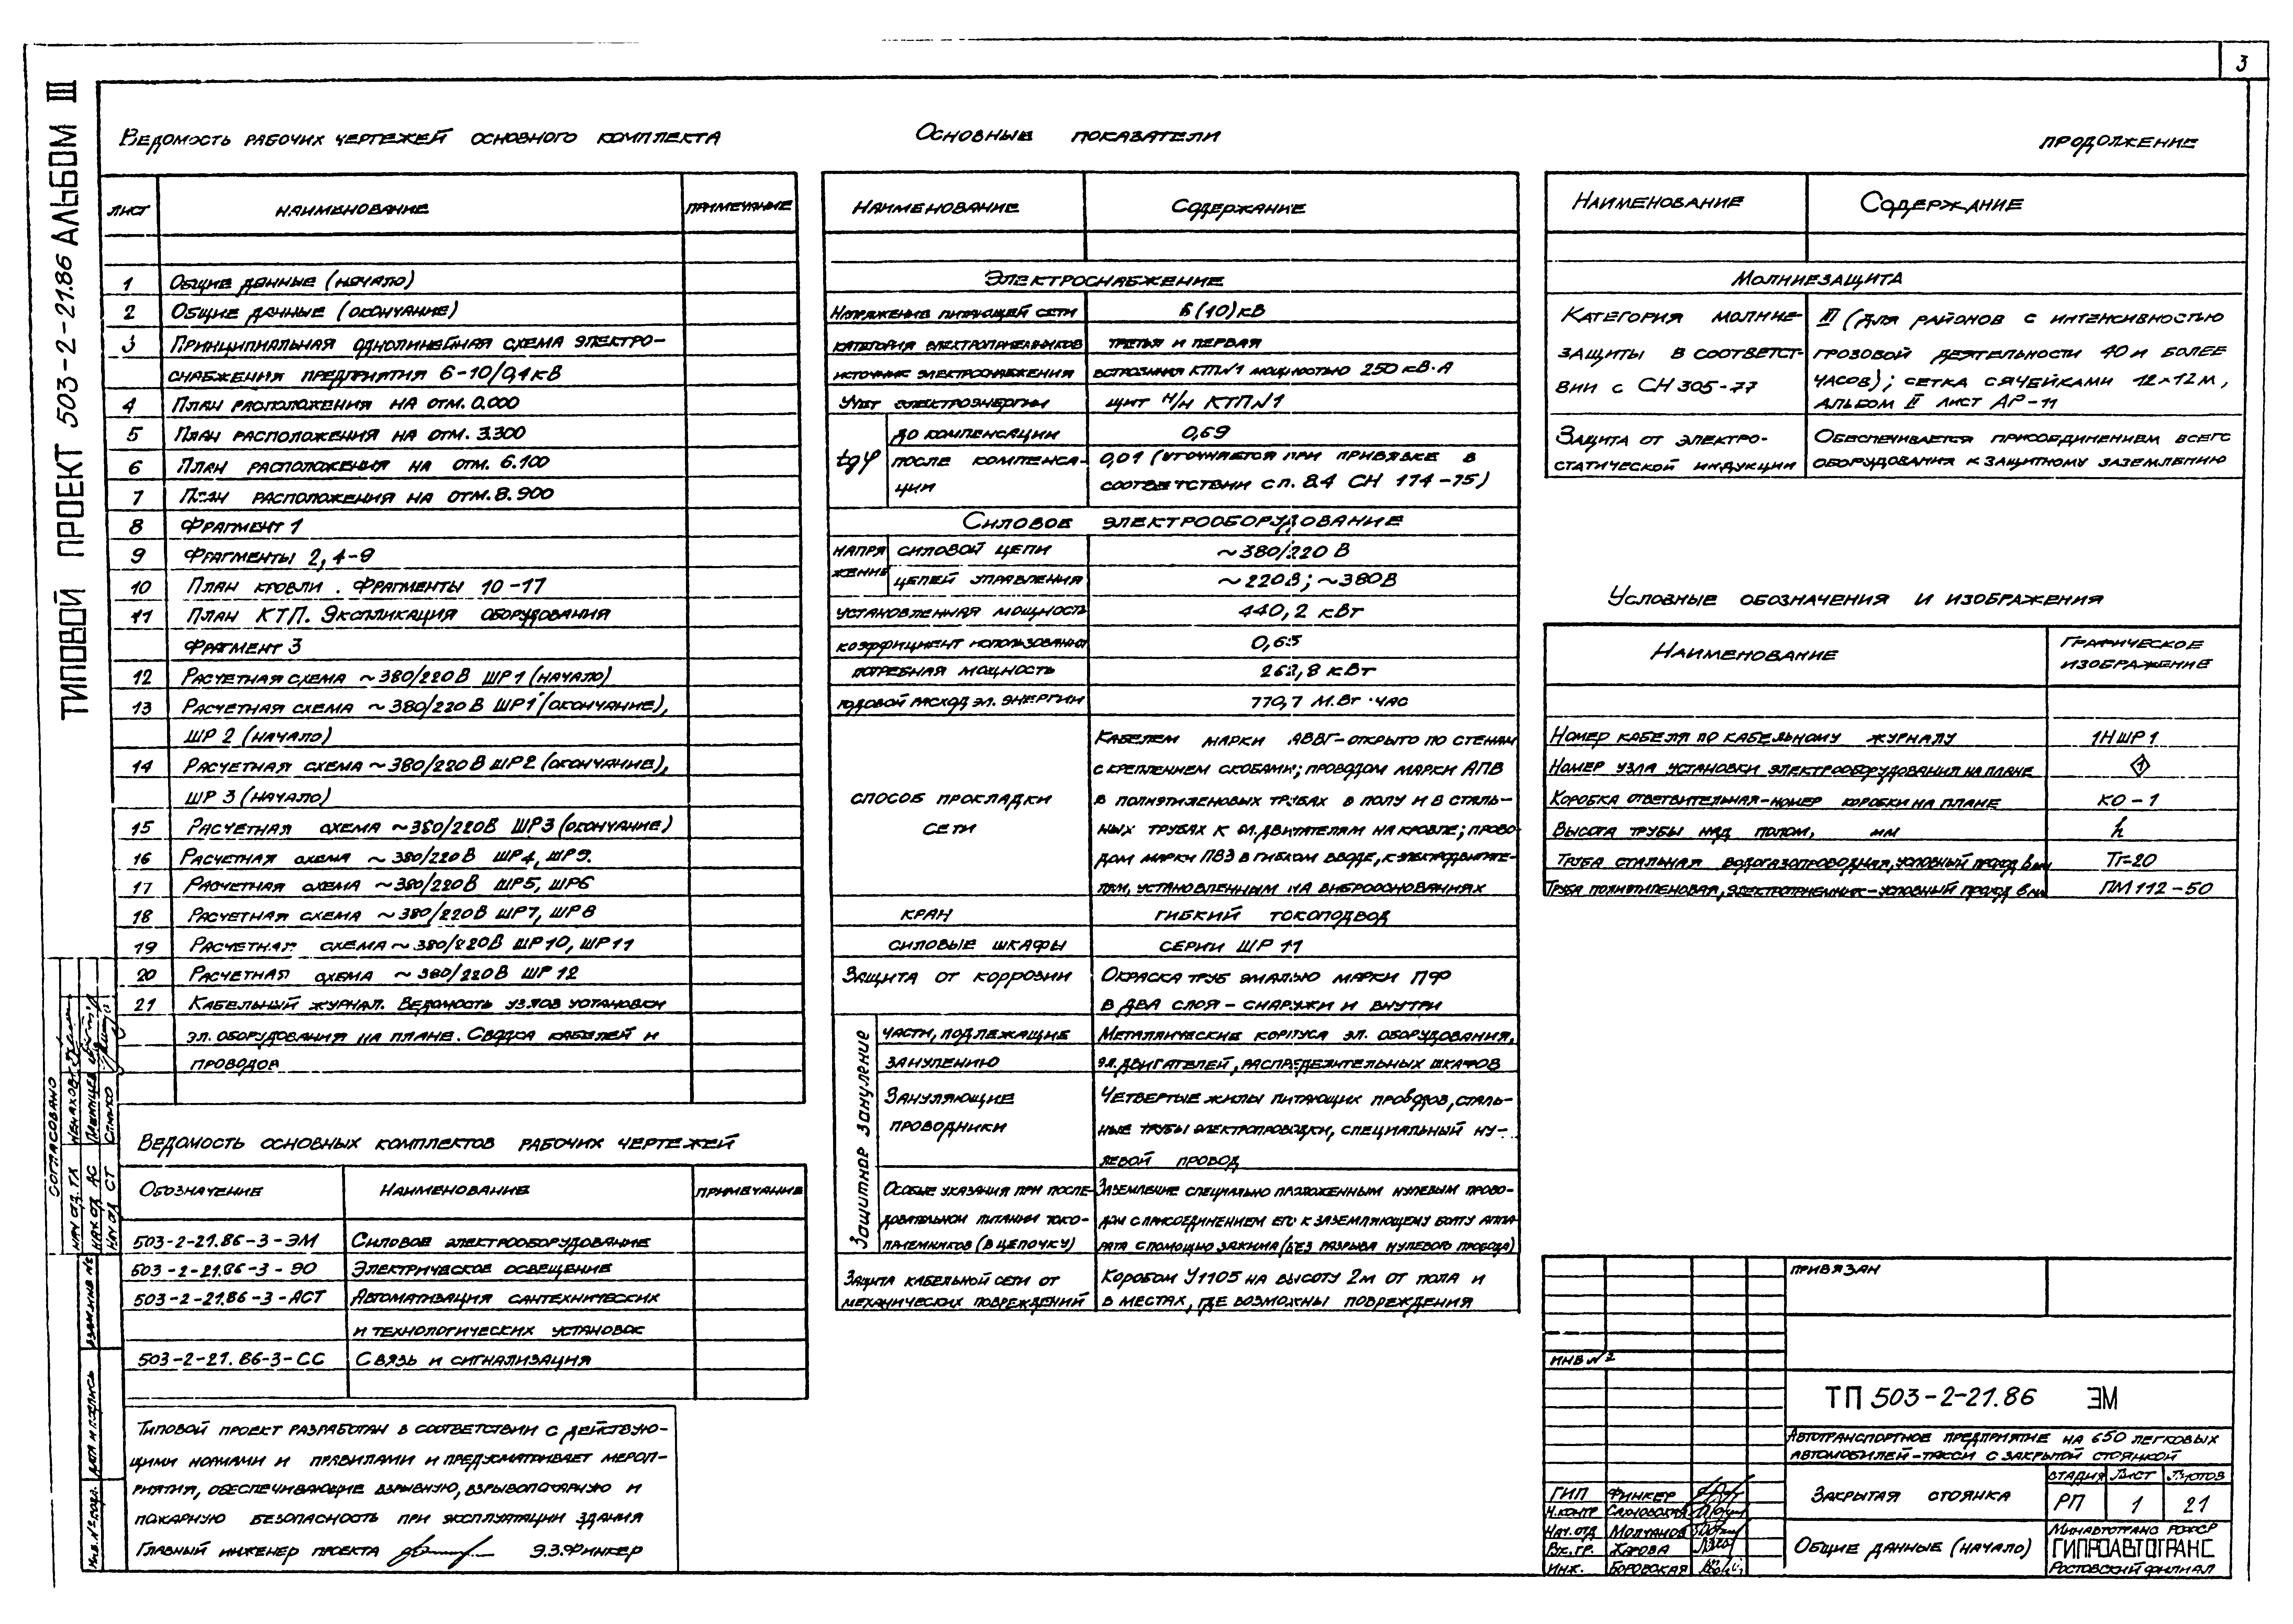 3
ТИПОВОЙ ПРОЕКТ 503-2-21.86 АЛЬБОМ III
ВЕДОМОСТЬ РАБОЧИХ ЧЕРТЕЖЕЙ ОСНОВНОГО КОМПЛЕКТА
ЛИСТ НАИМЕНОВАНИЕ ПРИМЕЧАНИЕ
1 ОБЩИЕ ДАННЫЕ (НАЧАЛО)
2 ОБЩИЕ ДАННЫЕ (ОКОНЧАНИЕ)
3 ПРИНЦИПИАЛЬНАЯ ОДНОЛИНЕЙНАЯ СХЕМА ЭЛЕКТРО-
СНАБЖЕНИЯ ПРЕДПРИЯТИЯ 6-10/0,4 КВ
4 ПЛАН РАСПОЛОЖЕНИЯ НА ОТМ. 0.000
5 ПЛАН РАСПОЛОЖЕНИЯ НА ОТМ. 3.300
6 ПЛАН РАСПОЛОЖЕНИЯ НА ОТМ. 6.100
7 ПЛАН РАСПОЛОЖЕНИЯ НА ОТМ. 8.900
8 ФРАГМЕНТ 1
9 ФРАГМЕНТЫ 2, 4-9
10 ПЛАН КРОВЛИ. ФРАГМЕНТЫ 10-17
11 ПЛАН КТП. ЭКСПЛИКАЦИЯ ОБОРУДОВАНИЯ
ФРАГМЕНТ 3
12 РАСЧЕТНАЯ СХЕМА ~380/220 В ШР1 (НАЧАЛО)
13 РАСЧЕТНАЯ СХЕМА ~380/220 В ШР1 (ОКОНЧАНИЕ),
ШР 2 (НАЧАЛО)
14 РАСЧЕТНАЯ СХЕМА ~380/220 В ШР2 (ОКОНЧАНИЕ),
ШР 3 (НАЧАЛО)
15 РАСЧЕТНАЯ СХЕМА ~380/220 В ШР3 (ОКОНЧАНИЕ)
16 РАСЧЕТНАЯ СХЕМА ~380/220 В ШР4, ШР9.
17 РАСЧЕТНАЯ СХЕМА ~380/220 В ШР5, ШР6
18 РАСЧЕТНАЯ СХЕМА ~380/220 В ШР7, ШР8
19 РАСЧЕТНАЯ СХЕМА ~380/220 В ШР10, ШР11
20 РАСЧЕТНАЯ СХЕМА ~380/220 В ШР 12
21 КАБЕЛЬНЫЙ ЖУРНАЛ. ВЕДОМОСТЬ УЗЛОВ УСТАНОВКИ
ЭЛ. ОБОРУДОВАНИЯ НА ПЛАНЕ. СВОДКА КАБЕЛЕЙ И
ПРОВОДОВ
ВЕДОМОСТЬ ОСНОВНЫХ КОМПЛЕКТОВ РАБОЧИХ ЧЕРТЕЖЕЙ
ОБОЗНАЧЕНИЕ НАИМЕНОВАНИЕ ПРИМЕЧАНИЕ
503-2-21.86-3-ЭМ СИЛОВОЕ ЭЛЕКТРООБОРУДОВАНИЕ
503-2-21.86-3-ЭО ЭЛЕКТРИЧЕСКОЕ ОСВЕЩЕНИЕ
503-2-21.86-3-АСТ АВТОМАТИЗАЦИЯ САНТЕХНИЧЕСКИХ
И ТЕХНОЛОГИЧЕСКИХ УСТАНОВОК
503-2-21.86-3-СС СВЯЗЬ И СИГНАЛИЗАЦИЯ
ТИПОВОЙ ПРОЕКТ РАЗРАБОТАН В СООТВЕТСТВИИ С ДЕЙСТВУЮ-
ЩИМИ НОРМАМИ И ПРАВИЛАМИ И ПРЕДУСМАТРИВАЕТ МЕРОП-
РИЯТИЯ, ОБЕСПЕЧИВАЮЩИЕ ВЗРЫВНУЮ, ВЗРЫВОПОЖАРНУЮ И
ПОЖАРНУЮ БЕЗОПАСНОСТЬ ПРИ ЭКСПЛУАТАЦИИ ЗДАНИЯ
ГЛАВНЫЙ ИНЖЕНЕР ПРОЕКТА Э.З.ФИНКЕР
ОСНОВНЫЕ ПОКАЗАТЕЛИ
НАИМЕНОВАНИЕ СОДЕРЖАНИЕ
ЭЛЕКТРОСНАБЖЕНИЕ
НАПРЯЖЕНИЕ ПИТАЮЩЕЙ СЕТИ 6(10) КВ
КАТЕГОРИЯ ЭЛЕКТРОПРИЕМНИКОВ ТРЕТЬЯ И ПЕРВАЯ
ИСТОЧНИК ЭЛЕКТРОСНАБЖЕНИЯ ВСТРОЕННАЯ КТП№1 МОЩНОСТЬЮ 250 КВ·А
УЧЕТ ЭЛЕКТРОЭНЕРГИИ ЩИТ Н/Н КТП№1
tgφ ДО КОМПЕНСАЦИИ 0,69
ПОСЛЕ КОМПЕНСА- 0,01 (УТОЧНЯЕТСЯ ПРИ ПРИВЯЗКЕ В
ЦИИ СООТВЕТСТВИИ С П. 8.4 СН 174-75)
СИЛОВОЕ ЭЛЕКТРООБОРУДОВАНИЕ
НАПРЯ СИЛОВОЙ ЦЕПИ ~380/220 В
ЖЕНИЕ ЦЕПЕЙ УПРАВЛЕНИЯ ~220 В; ~380 В
УСТАНОВЛЕННАЯ МОЩНОСТЬ 440,2 КВТ
КОЭФФИЦИЕНТ ИСПОЛЬЗОВАНИЯ 0,65
ПОТРЕБНАЯ МОЩНОСТЬ 262,8 КВТ
ГОДОВОЙ РАСХОД ЭЛ. ЭНЕРГИИ 770,7 М.ВТ·ЧАС
СПОСОБ ПРОКЛАДКИ
СЕТИ
КАБЕЛЕМ МАРКИ АВВГ-ОТКРЫТО ПО СТЕНАМ
С КРЕПЛЕНИЕМ СКОБАМИ; ПРОВОДОМ МАРКИ АПВ
В ПОЛИЭТИЛЕНОВЫХ ТРУБАХ В ПОЛУ И В СТАЛЬ-
НЫХ ТРУБАХ К ЭЛ.ДВИГАТЕЛЯМ НА КРОВЛЕ; ПРОВО-
ДОМ МАРКИ ПВЗ В ГИБКОМ ВВОДЕ, К ЭЛЕКТРОДВИГАТЕ-
ЛЯМ, УСТАНОВЛЕННЫМ НА ВИБРООСНОВАНИЯХ
КРАН ГИБКИЙ ТОКОПОДВОД
СИЛОВЫЕ ШКАФЫ СЕРИИ ШР 11
ЗАЩИТА ОТ КОРРОЗИИ ОКРАСКА ТРУБ ЭМАЛЬЮ МАРКИ ПФ
В ДВА СЛОЯ - СНАРУЖИ И ВНУТРИ
ЗАЩИТНОЕ ЗАНУЛЕНИЕ
ЧАСТИ, ПОДЛЕЖАЩИЕ МЕТАЛЛИЧЕСКИЕ КОРПУСА ЭЛ. ОБОРУДОВАНИЯ,
ЗАНУЛЕНИЮ ЭЛ.ДВИГАТЕЛЕЙ, РАСПРЕДЕЛИТЕЛЬНЫХ ШКАФОВ
ЗАНУЛЯЮЩИЕ ЧЕТВЕРТЫЕ ЖИЛЫ ПИТАЮЩИХ ПРОВОДОВ, СТАЛЬ-
ПРОВОДНИКИ НЫЕ ТРУБЫ ЭЛЕКТРОПРОВОДКИ, СПЕЦИАЛЬНЫЙ НУ-
ЛЕВОЙ ПРОВОД
ОСОБЫЕ УКАЗАНИЯ ПРИ ПОСЛЕ- ЗАЗЕМЛЕНИЕ СПЕЦИАЛЬНО ПРОЛОЖЕННЫМ НУЛЕВЫМ ПРОВО-
ДОВАТЕЛЬНОМ ПИТАНИИ ТОКО- ДОМ С ПРИСОЕДИНЕНИЕМ ЕГО К ЗАЗЕМЛЯЮЩЕМУ БОЛТУ АППА-
ПРИЕМНИКОВ (В ЦЕПОЧКУ) РАТА С ПОМОЩЬЮ ЗАЖИМА (БЕЗ РАЗРЫВА НУЛЕВОГО ПРОВОДА)
ЗАЩИТА КАБЕЛЬНОЙ СЕТИ ОТ КОРОБОМ У1105 НА ВЫСОТУ 2М ОТ ПОЛА И
МЕХАНИЧЕСКИХ ПОВРЕЖДЕНИЙ В МЕСТАХ, ГДЕ ВОЗМОЖНЫ ПОВРЕЖДЕНИЯ
ПРОДОЛЖЕНИЕ
НАИМЕНОВАНИЕ СОДЕРЖАНИЕ
МОЛНИЕЗАЩИТА
КАТЕГОРИЯ МОЛНИЕ- III (ДЛЯ РАЙОНОВ С ИНТЕНСИВНОСТЬЮ
ЗАЩИТЫ В СООТВЕТСТ- ГРОЗОВОЙ ДЕЯТЕЛЬНОСТИ 40 И БОЛЕЕ
ВИИ С СН 305-77 ЧАСОВ); СЕТКА С ЯЧЕЙКАМИ 12×12 М,
АЛЬБОМ II ЛИСТ АР-11
ЗАЩИТА ОТ ЭЛЕКТРО- ОБЕСПЕЧИВАЕТСЯ ПРИСОЕДИНЕНИЕМ ВСЕГО
СТАТИЧЕСКОЙ ИНДУКЦИИ ОБОРУДОВАНИЯ К ЗАЩИТНОМУ ЗАЗЕМЛЕНИЮ
УСЛОВНЫЕ ОБОЗНАЧЕНИЯ И ИЗОБРАЖЕНИЯ
НАИМЕНОВАНИЕ ГРАФИЧЕСКОЕ
ИЗОБРАЖЕНИЕ
НОМЕР КАБЕЛЯ ПО КАБЕЛЬНОМУ ЖУРНАЛУ 1НШР1
НОМЕР УЗЛА УСТАНОВКИ ЭЛЕКТРООБОРУДОВАНИЯ НА ПЛАНЕ 1
КОРОБКА ОТВЕТВИТЕЛЬНАЯ-НОМЕР КОРОБКИ НА ПЛАНЕ КО-1
ВЫСОТА ТРУБЫ НАД ПОЛОМ, ММ h
ТРУБА СТАЛЬНАЯ ВОДОГАЗОПРОВОДНАЯ, УСЛОВНЫЙ ПРОХОД В ММ ТГ-20
ТРУБА ПОЛИЭТИЛЕНОВАЯ, ЭЛЕКТРОПРИЕМНИК-УСЛОВНЫЙ ПРОХОД В ММ ПМ112-50
СОГЛАСОВАНО
НАЧ ОД ТХ
НАЧ. ОД АС
НАЧ ОД СТ
ВЗАМ.ИНВ №
ДАТА И ПОДПИСЬ
ИНВ.№ ПОДЛ.
ПРИВЯЗАН
ИНВ №
ТП 503-2-21.86 ЭМ
АВТОТРАНСПОРТНОЕ ПРЕДПРИЯТИЕ НА 650 ЛЕГКОВЫХ
АВТОМОБИЛЕЙ-ТАКСИ С ЗАКРЫТОЙ СТОЯНКОЙ
ЗАКРЫТАЯ СТОЯНКА
СТАДИЯ ЛИСТ ЛИСТОВ
РП 1 21
ГИП ФИНКЕР
Н.КОНТР
НАЧ.ОТД МОЛЧАНОВ
РУК.ГР. ЖАРОВА
ИНЖ. БОРОВСКАЯ
ОБЩИЕ ДАННЫЕ (НАЧАЛО)
МИНАВТОТРАНС РСФСР
ГИПРОАВТОТРАНС
РОСТОВСКИЙ ФИЛИАЛ